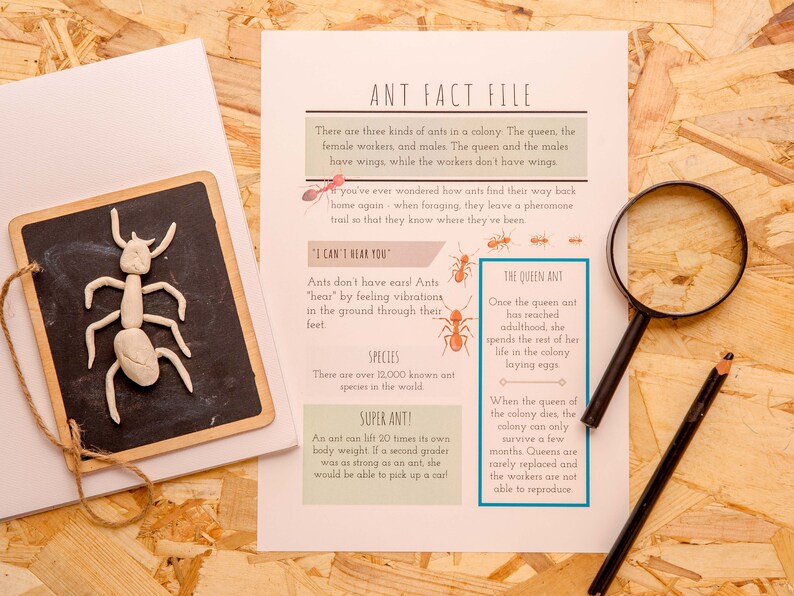 ANT FACT FILE
There are three kinds of ants in a colony. The queen, the
female workers, and males. The queen and the males
have wings, while the workers don't have wings.
If you've ever wondered how ants find their way back
home again - when foraging, they leave a pheromone
trail so that they know where they've been.
"I CAN'T HEAR YOU"
Ants don't have ears! Ants
"hear" by feeling vibrations
in the ground through their
feet.
SPECIES
There are over 12,000 known ant
species in the world.
SUPER ANT!
An ant can lift 20 times its own
body weight. If a second grader
was as strong as an ant, she
would be able to pick up a car!
THE QUEEN ANT
Once the queen ant
has reached
adulthood, she
spends the rest of her
life in the colony
laying eggs.
When the queen of
the colony dies, the
colony can only
survive a few
months. Queens are
rarely replaced and
the workers are not
able to reproduce.